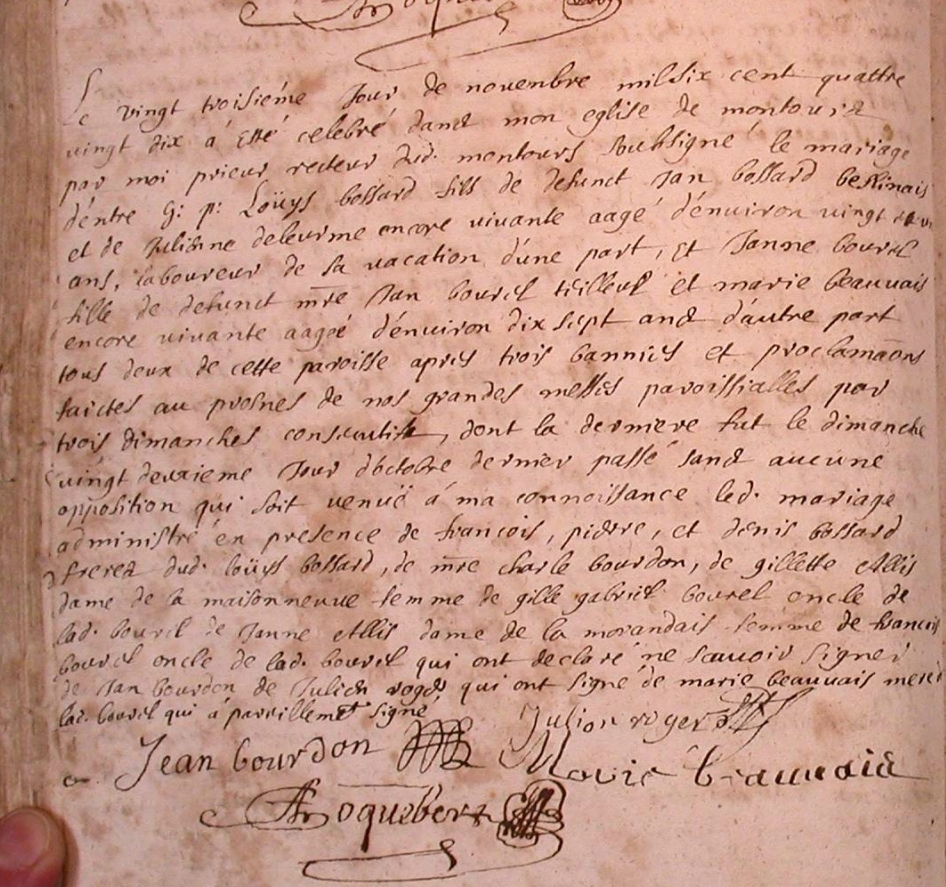 Le vingt troisiéme Jour de novembre mil six cent quattre
vingt dix á Esté celebré dans mon eglise de montours
par moi prieur recteur dud. montours soubsigné le mariage
d'entre h: p: Loüys bossard fils de defunct Jan bossard
et de Julienne deleurme encore vivante aagé d'enuiron vingt
ans, laboureur de sa vacation d'une part, et Janne bourel
fille de defunct mre Jan bourel et marie beauvais
encore vivante aageé d'enuiron dix sept ans d'autre part
tous deux de cette paroisse apres trois bannies et proclamaons
faictes au prosnes de nos grandes messes paroissialles par
trois dimanches consecutifs, dont la derniere fut le dimanche
vingt deuxieme Jour d'octobre dernier passé sans aucune
opposition qui soit venuë á ma connoissance led. mariage
administré en presence de francois, pierre, et denis bossard
freres dud. loüys bossard, de mre charle bourdon, de gillette Allis
dame de la maisonneuue femme de gille gabriel bourel oncle de
lad. bourel de Janne Allis dame de la morandais femme de francois
bourel oncle de lad. bourel qui ont declaré ne scauoir signer
de Jan bourdon de Julien roger qui ont signé de marie beauvais mere d
lad. bourel qui á pareillemt signé
Julien roger
Jean bourdon
Marie beauuais
Roquebert